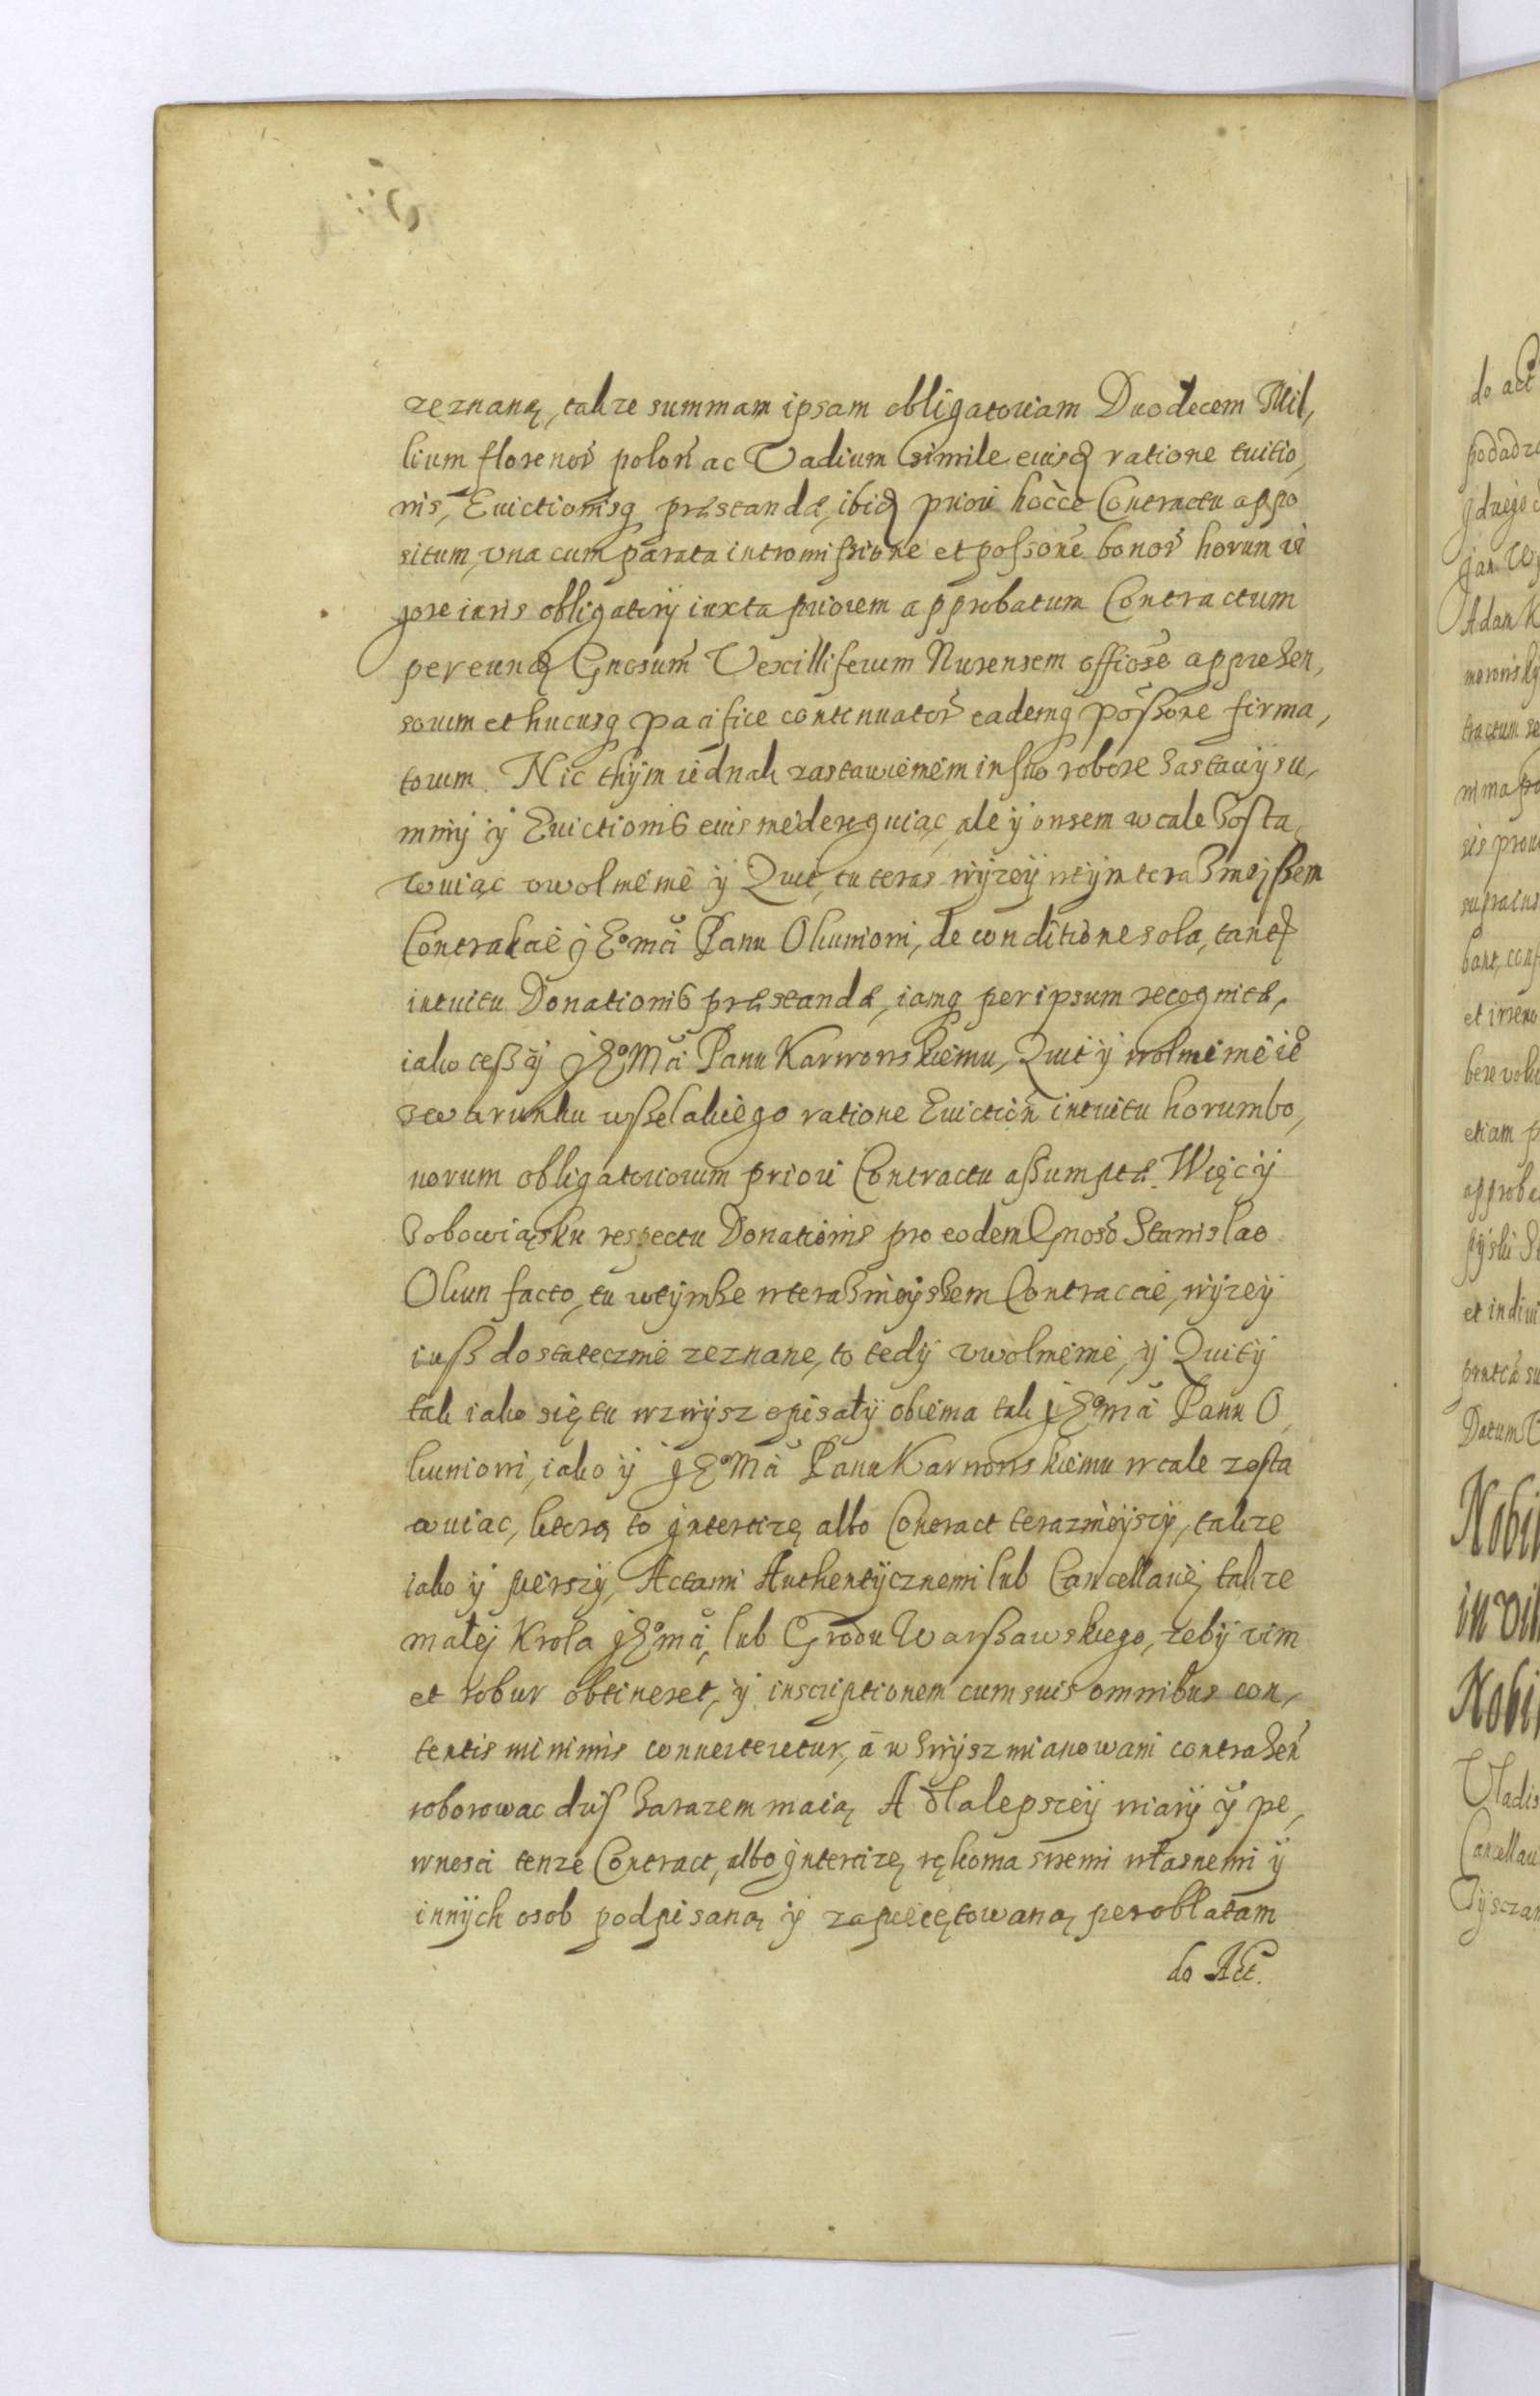 zeznaną, takze summam ipsam obligatoriam Duodecem Mil,
lium florenor̃ polon̄ ac Vadium simile eiusd̨ ratione tuitio,
nis, Euictionisq̨ præstandæ, ibid̨ priori hocce Contractu appo
situm, vna cum parata intromissione et possone bonor̃ horum vi
gore iuris obligatorij iuxta priorem approbatum Contractum
per eund̨ Gnosum Vexilliferum Nurensem officiose apprehen,
sorum et hucusq̨ pacifice continuator̃ eademq̨ possone firma,
torum. Nic thÿm iednak zastawieniem in suo robore zastawÿ su,
mmÿ ÿ Euictionis eius nie deroguiąc, ale ÿ onsem wcale Zosta
wuiąc vwolnienie ÿ Quit, tu teras wÿzeÿ wtÿm teraznieÿszem
Contrakcie jEo mci Panu Okunioni, de conditione sola, tant
intuitu Donationis præstandæ, iamq̨ per ipsum recognitæ,
iako tesz ÿ jEo Mci Panu Karwowskiemu, Quit ÿ wolnienie ie
z warunku wszelakiego ratione Euiction̄ intuitu horum bo,
norum obligatoriorum priori Contractu assumptæ. Więc ÿ
Zobowiąsku respectu Donationis pro eodem Gnoso Stanislao
Okun facto, tu wtÿmze wteraznieÿszem Contracie, wÿzeÿ
iusz dostatecznie zeznane, to tedÿ vwolnienie, ÿ Quitÿ
tak iako się tu wzwÿsz opisałÿ obiema tak jEo mci Panu O
kuniowi, iako ÿ jEo Mci Panu Karwowskiemu wcale zosta
wuiac, ktorą to jntercizę albo Contract teraznieÿszÿ, takze
iako ÿ pierszÿ, Actami Authentÿcznemi lub Cancellarię takze
małej Krola jEo mci, lub Grodu Warszawskiego, zebÿ vim
et robur obtineret, ÿ inscriptionem cum suis omnibus con,
tentis minimis conuerteretur, á wzwÿsz mianowani contrahen̄
roborowac dusz zarazem maią. A dla lepszeÿ wiarÿ ÿ pe,
wnosci tenze Contract, albo jntercizę, rękoma swemi własnemi ÿ
innÿch osob podpisaną ÿ zapieciętowaną per oblatam
do Act.